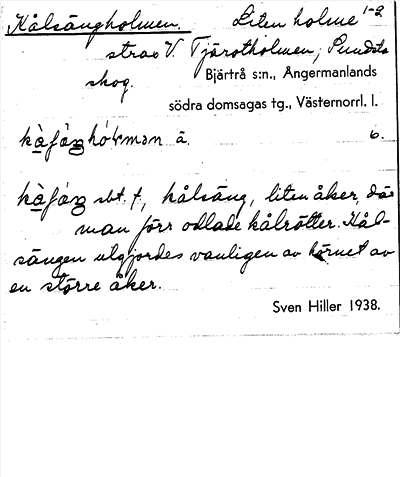 Kålsängholmen. Liten holme 1-2
strax V. Tjärotholmen,
skog. Bjärtrå s:n., Ångermanlands
södra domsagas tg., Västernorrl. l.
6.
sbt. f, kålsäng, liten åker, där
man förr odlade kålrötter. Kål-
sängen utgjordes vanligen av hörnet av
en större åker.
Sven Hiller 1938.